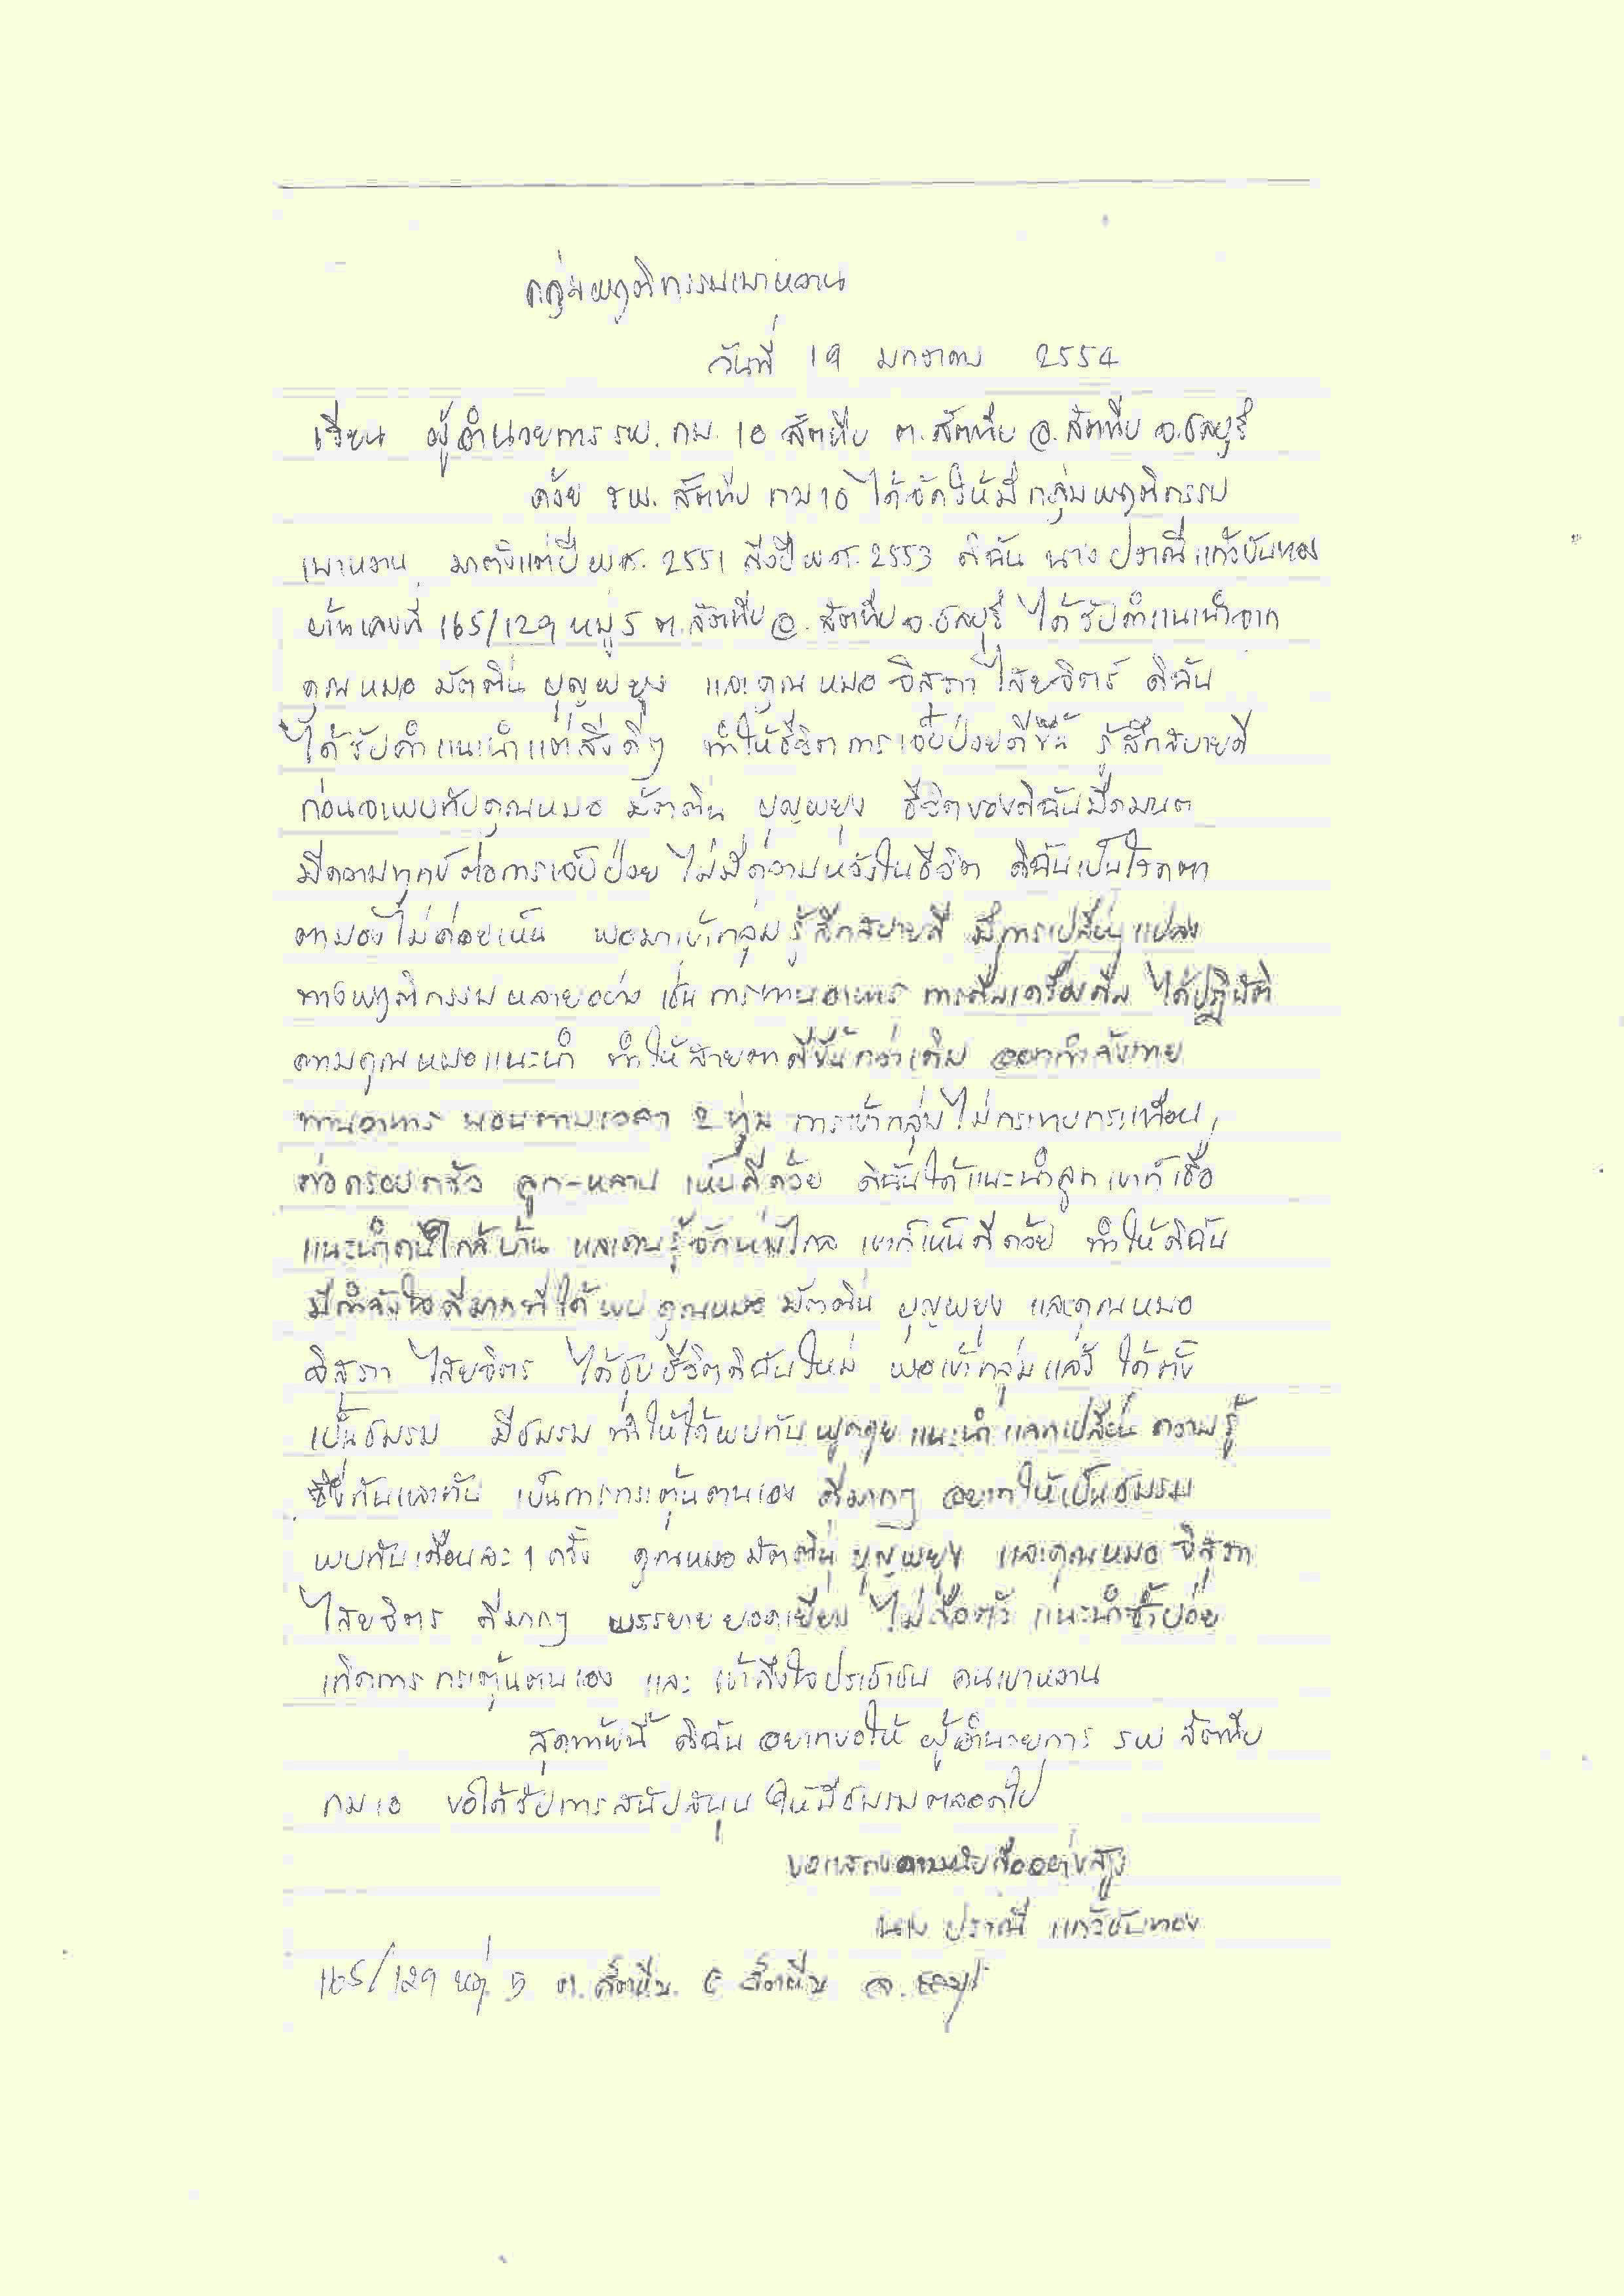 กลุ่มพฤติกรรมเบาหวาน
วันที่ 19 มกราคม 2554
เรียน ผู้อำนวยการ รพ. กม. 10 สัตหีบ ต. สัตหีบ อ. สัตหีบ จ. ชลบุรี
ด้วย รพ. สัตหีบ กม 10 ได้จัดให้มีกลุ่มพฤติกรรม
เบาหวาน มาตั้งแต่ปี พ.ศ. 2551 ถึงปี พ.ศ. 2553 ดิฉัน นาง ปราณี แก้วขันทอง
บ้านเลขที่ 165/129 หมู่ 5 ต. สัตหีบ อ. สัตหีบ จ. ชลบุรี ได้รับคำแนะนำจาก
คุณหมอ มัตติน บุญพยุง และคุณหมอ จิสุภา ไสยจิตร์ ดิฉัน
ได้รับคำแนะนำแต่สิ่งดีๆ ทำให้ชีวิตการเจ็บป่วยดีขึ้น รู้สึกสบายดี
ก่อนจะพบกับคุณหมอ มัตติน บุญพยุง ชีวิตของดิฉันมืดมนต
มีความทุกข์ต่อการเจ็บป่วย ไม่มีความหวังในชีวิต ดิฉันเป็นโรคตา
ตามองไม่ค่อยเห็น พอมาเข้ากลุ่มรู้สึกสบายดี มีการเปลี่ยนแปลง
ทางพฤติกรรมหลายอย่าง เช่น การทานอาหาร การดื่มเครื่องดื่ม ได้ปฏิบัติ
ตามคุณหมอแนะนำ ทำให้สายตาดีขึ้นกว่าเดิม ออกกำลังกาย
ทานอาหาร นอนตามเวลา 2 ทุ่ม การเข้ากลุ่มไม่กระทบกระเทือน
ต่อครอบครัว ลูก-หลาน เห็นดีด้วย ดิฉันได้แนะนำลูก เขาก็เชื่อ
แนะนำคนใกล้บ้าน และคนรู้จักห่างไกล เขาก็เห็นดีด้วย ทำให้ดิฉัน
มีกำลังใจดีมากที่ได้พบ คุณหมอ มัตติน บุญพยุง และคุณหมอ
จิสุภา ไสยจิตร ได้ชุบชีวิตดิฉันใหม่ พอเข้ากลุ่มแล้ว ได้ตั้ง
เป็นชมรม มีชมรม ทำให้ได้พบกัน พูดคุย แนะนำ แลกเปลี่ยน ความรู้
ซึ่งกันและกัน เป็นการกระตุ้นตนเอง ดีมากๆ อยากให้เป็นชมรม
พบกันเดือนละ 1 ครั้ง คุณหมอ มัตติน บุญพยุง และคุณหมอ จิสุภา
ไสยจิตร ดีมากๆ บรรยาย ยอดเยี่ยม ไม่ถือตัว แนะนำซ้ำบ่อย
เกิดการกระตุ้นตนเอง และ เข้าถึงใจประชาชน คนเบาหวาน
สุดท้ายนี้ ดิฉัน อยากขอให้ ผู้อำนวยการ รพ สัตหีบ
กม 10 ขอได้รับการสนับสนุน ให้มีชมรมตลอดไป
ขอแสดงความนับถืออย่างสูง
นาง ปราณี แก้วขันทอง
165/129 หมู่ 5 ต. สัตหีบ. อ สัตหีบ จ. ชลบุรี